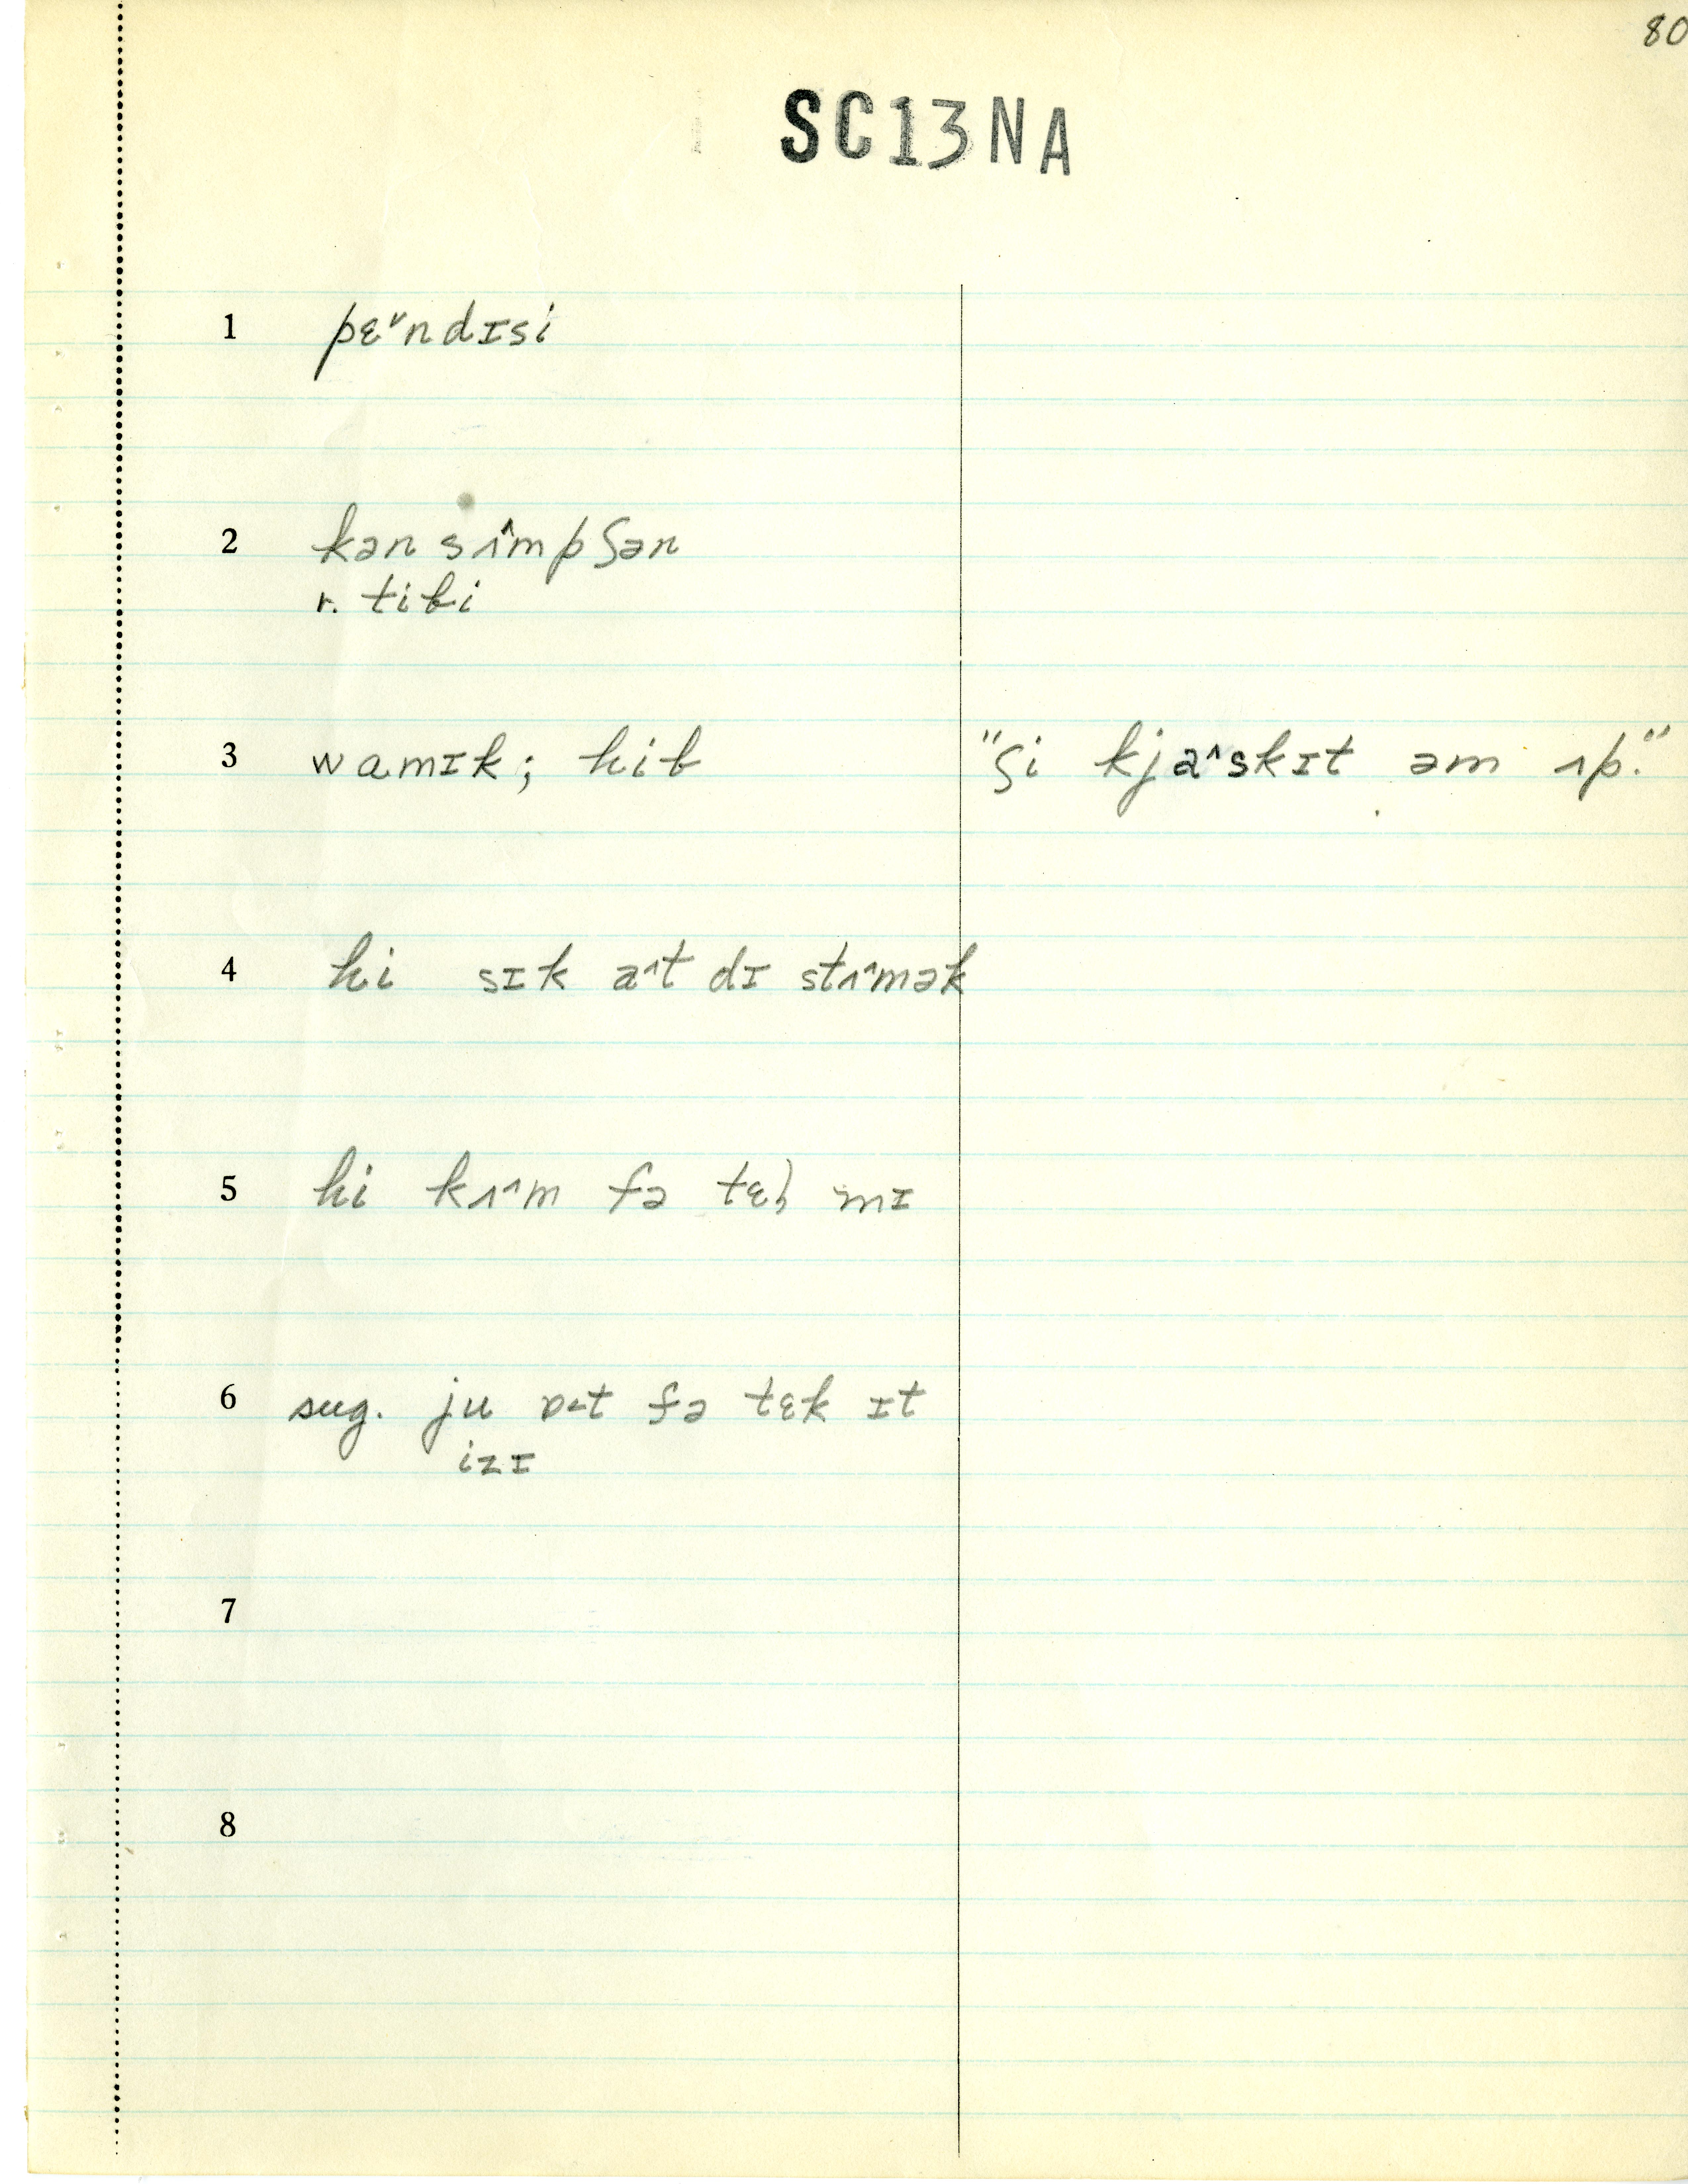 80
SC13NA
1 pɛ˅ndɪsi
2 kən sʌ^mpʃən
r. tibi
3 wamɪk; hib "ʃi kja^skɪt əm ʌp."
4 hi sɪk a^t dɪ stʌ^mək
5 hi kʌ^m fə tɛl mɪ
6 sug. ju ɒ˂t fə tɛk ɪt
izɪ
7
8